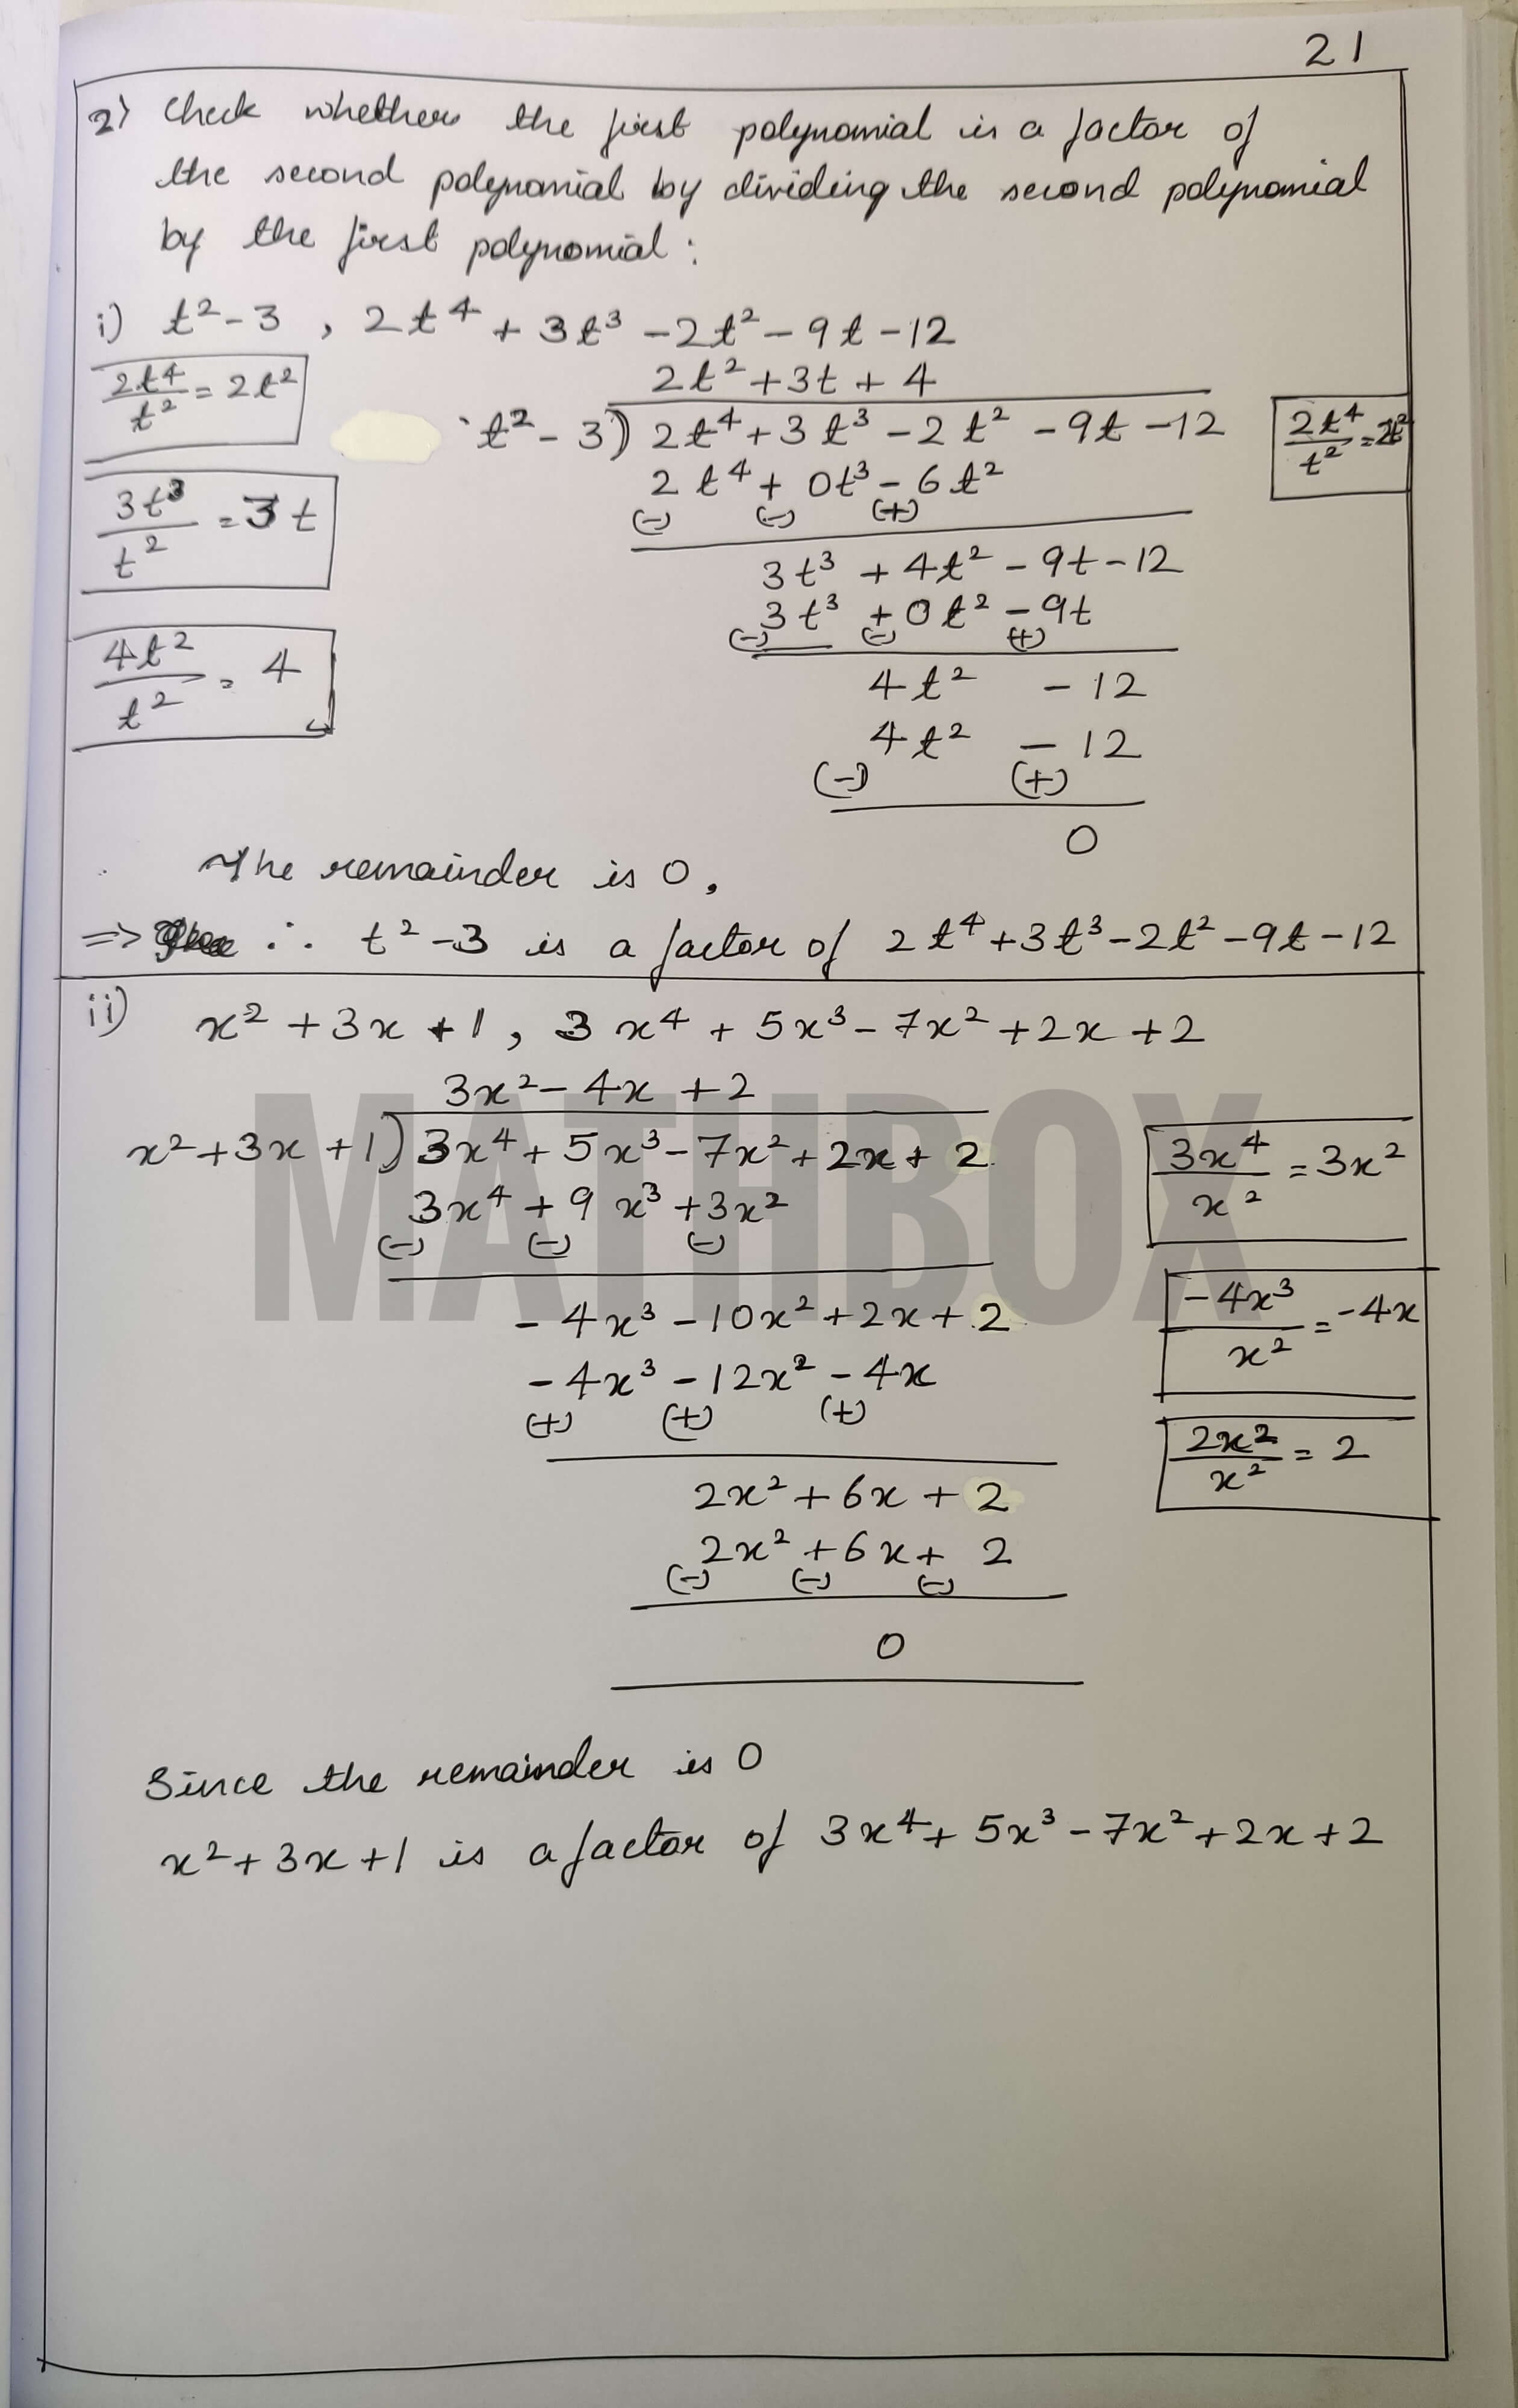 21
2) Check whether the first polynomial is a factor of
the second polynomial by dividing the second polynomial
by the first polynomial :
i) t² - 3 , 2t⁴ + 3t³ - 2t² - 9t - 12
2t⁴/t² = 2t²
2t² + 3t + 4
t² - 3) 2t⁴ + 3t³ - 2t² - 9t - 12
2t⁴/t² = 2t²
2t⁴ + 0t³ - 6t²
(-) (-) (+)
3t³/t² = 3t
3t³ + 4t² - 9t - 12
3t³ + 0t² - 9t
(-) (-) (+)
4t²/t² = 4
4t² - 12
4t² - 12
(-) (+)
0
The remainder is 0,
=> ∴ t² - 3 is a factor of 2t⁴ + 3t³ - 2t² - 9t - 12
ii) x² + 3x + 1 , 3x⁴ + 5x³ - 7x² + 2x + 2
3x² - 4x + 2
x² + 3x + 1) 3x⁴ + 5x³ - 7x² + 2x + 2
3x⁴/x² = 3x²
3x⁴ + 9x³ + 3x²
(-) (-) (-)
- 4x³ - 10x² + 2x + 2
-4x³/x² = -4x
- 4x³ - 12x² - 4x
(+) (+) (+)
2x²/x² = 2
2x² + 6x + 2
2x² + 6x + 2
(-) (-) (-)
0
Since the remainder is 0
x² + 3x + 1 is a factor of 3x⁴ + 5x³ - 7x² + 2x + 2
MATHBOX